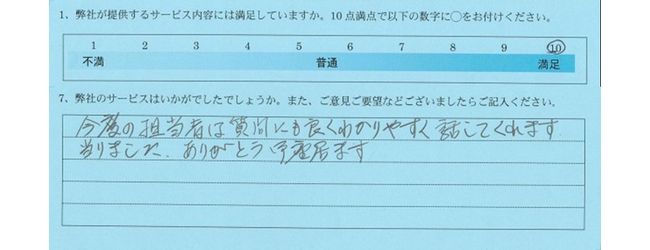 1、弊社が提供するサービス内容には満足していますか。10点満点で以下の数字に○をお付けください。
1 2 3 4 5 6 7 8 9 10
不満 普通 満足
7、弊社のサービスはいかがでしたでしょうか。また、ご意見ご要望などございましたらご記入ください。
今度の担当者は質問にも良くわかりやすく話してくれます
りました、ありがとう